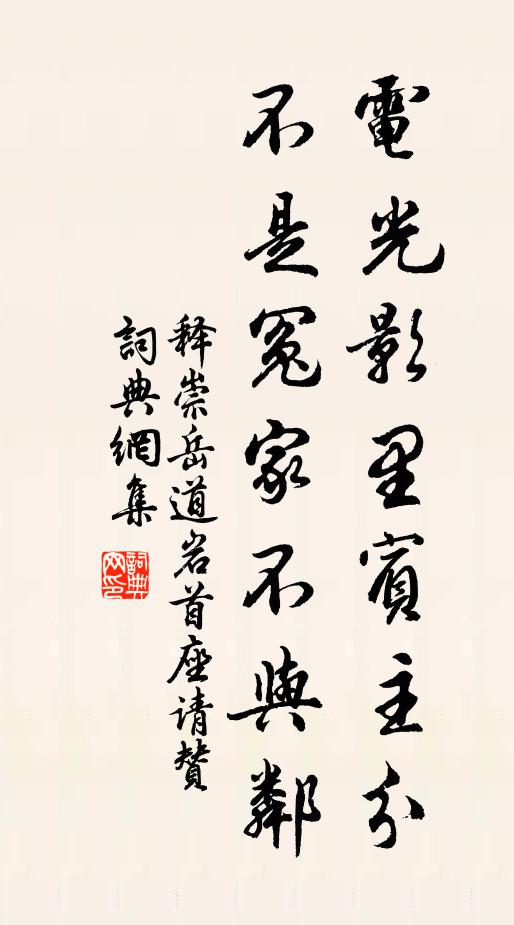 電光影里賓主分
不是冤家不與鄰
释崇岳道岩首座请赞
詞典網集
詞典网印